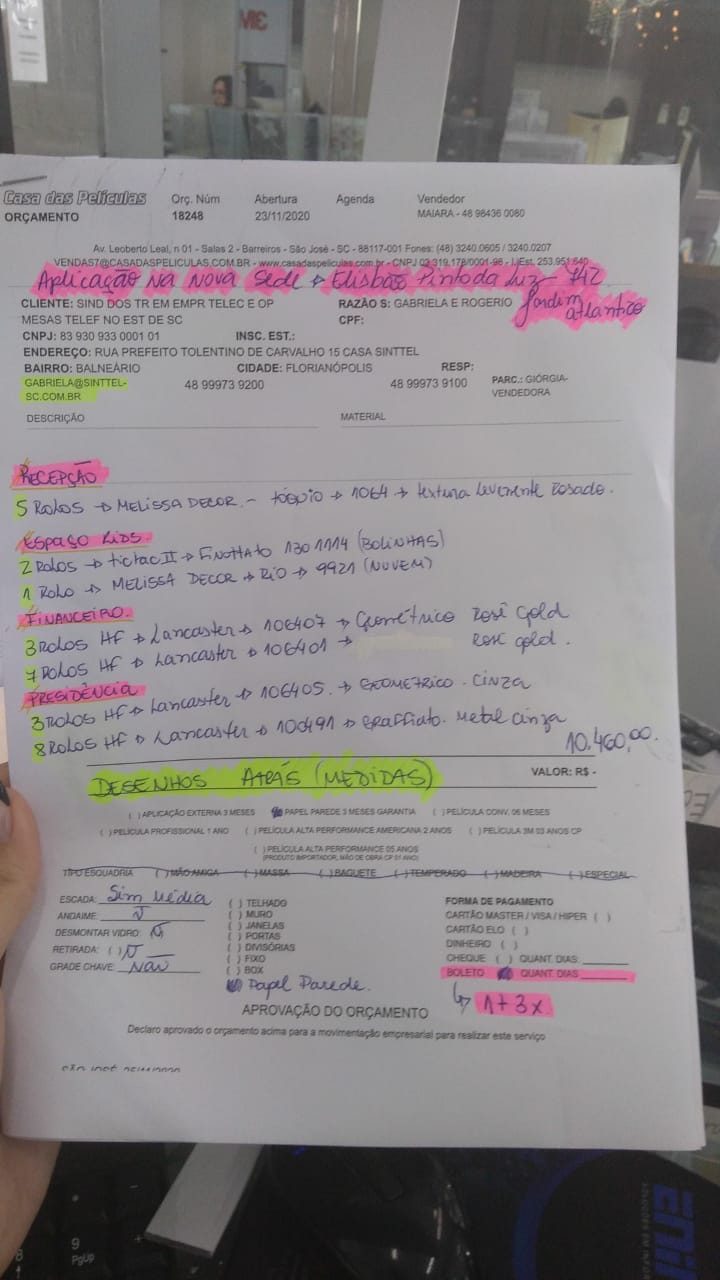 Casa das Películas
ORÇAMENTO
Orç. Núm
18248
Abertura
23/11/2020
Agenda
Vendedor
MAIARA - 48 98436 0080
Av. Leoberto Leal, n 01 - Salas 2 - Barreiros - São José - SC - 88117-001 Fones: (48) 3240.0605 / 3240.0207
VENDAS7@CASADASPELICULAS.COM.BR - www.casadaspeliculas.com.br - CNPJ 03.319.178/0001-96 - I.Est. 253.951.640
Aplicação na Nova Sede → Elisbão Pinto da Luz 742
Jardim atlantico
CLIENTE: SIND DOS TR EM EMPR TELEC E OP
MESAS TELEF NO EST DE SC
RAZÃO S: GABRIELA E ROGERIO
CPF:
CNPJ: 83 930 933 0001 01
INSC. EST.:
ENDEREÇO: RUA PREFEITO TOLENTINO DE CARVALHO 15 CASA SINTTEL
BAIRRO: BALNEÁRIO
CIDADE: FLORIANÓPOLIS
RESP:
GABRIELA@SINTTEL-
SC.COM.BR
48 99973 9200
48 99973 9100
PARC.: GIÓRGIA-
VENDEDORA
DESCRIÇÃO
MATERIAL
RECEPÇÃO
5 Rolos → MELISSA DECOR. - tóquio → 1064 → textura Levemente Rosado.
Espaço Kids.
2 Rolos → tictac II → Finottato 1301114 (BOLINHAS)
1 Rolo → MELISSA DECOR → Rio → 9921 (NUVEM)
FINANCEIRO.
3 Rolos HF → Lancaster → 106407 → Geométrico Rosê Gold
7 Rolos HF → Lancaster → 106401 → Rosê gold.
PRESIDÊNCIA
3 Rolos HF → Lancaster → 106405. → GEOMETRICO. CINZA
8 Rolos HF → Lancaster → 100491 → Graffiato. Metal cinza
10.460,00.
DESENHOS ATRÁS (MEDIDAS)
VALOR: R$ -
( ) APLICAÇÃO EXTERNA 3 MESES PAPEL PAREDE 3 MESES GARANTIA ( ) PELÍCULA CONV. 06 MESES
( ) PELÍCULA PROFISSIONAL 1 ANO ( ) PELÍCULA ALTA PERFORMANCE AMERICANA 2 ANOS ( ) PELÍCULA 3M 03 ANOS CP
( ) PELÍCULA ALTA PERFORMANCE 05 ANOS
(PRODUTO IMPORTADOR, MÃO DE OBRA CP 01 ANO)
TIPO ESQUADRIA ( ) MÃO AMIGA ( ) MASSA ( ) BAQUETE ( ) TEMPERADO ( ) MADEIRA ( ) ESPECIAL
ESCADA: Sim Média
ANDAIME: N
DESMONTAR VIDRO: N
RETIRADA: ( ) N
GRADE CHAVE: Não
( ) TELHADO
( ) MURO
( ) JANELAS
( ) PORTAS
( ) DIVISÓRIAS
( ) FIXO
( ) BOX
Papel Parede.
FORMA DE PAGAMENTO
CARTÃO MASTER / VISA / HIPER ( )
CARTÃO ELO ( )
DINHEIRO ( )
CHEQUE ( ) QUANT. DIAS:
BOLETO QUANT. DIAS
↳ 1+3x
APROVAÇÃO DO ORÇAMENTO
Declaro aprovado o orçamento acima para a movimentação empresarial para realizar este serviço
9
PgUp
8